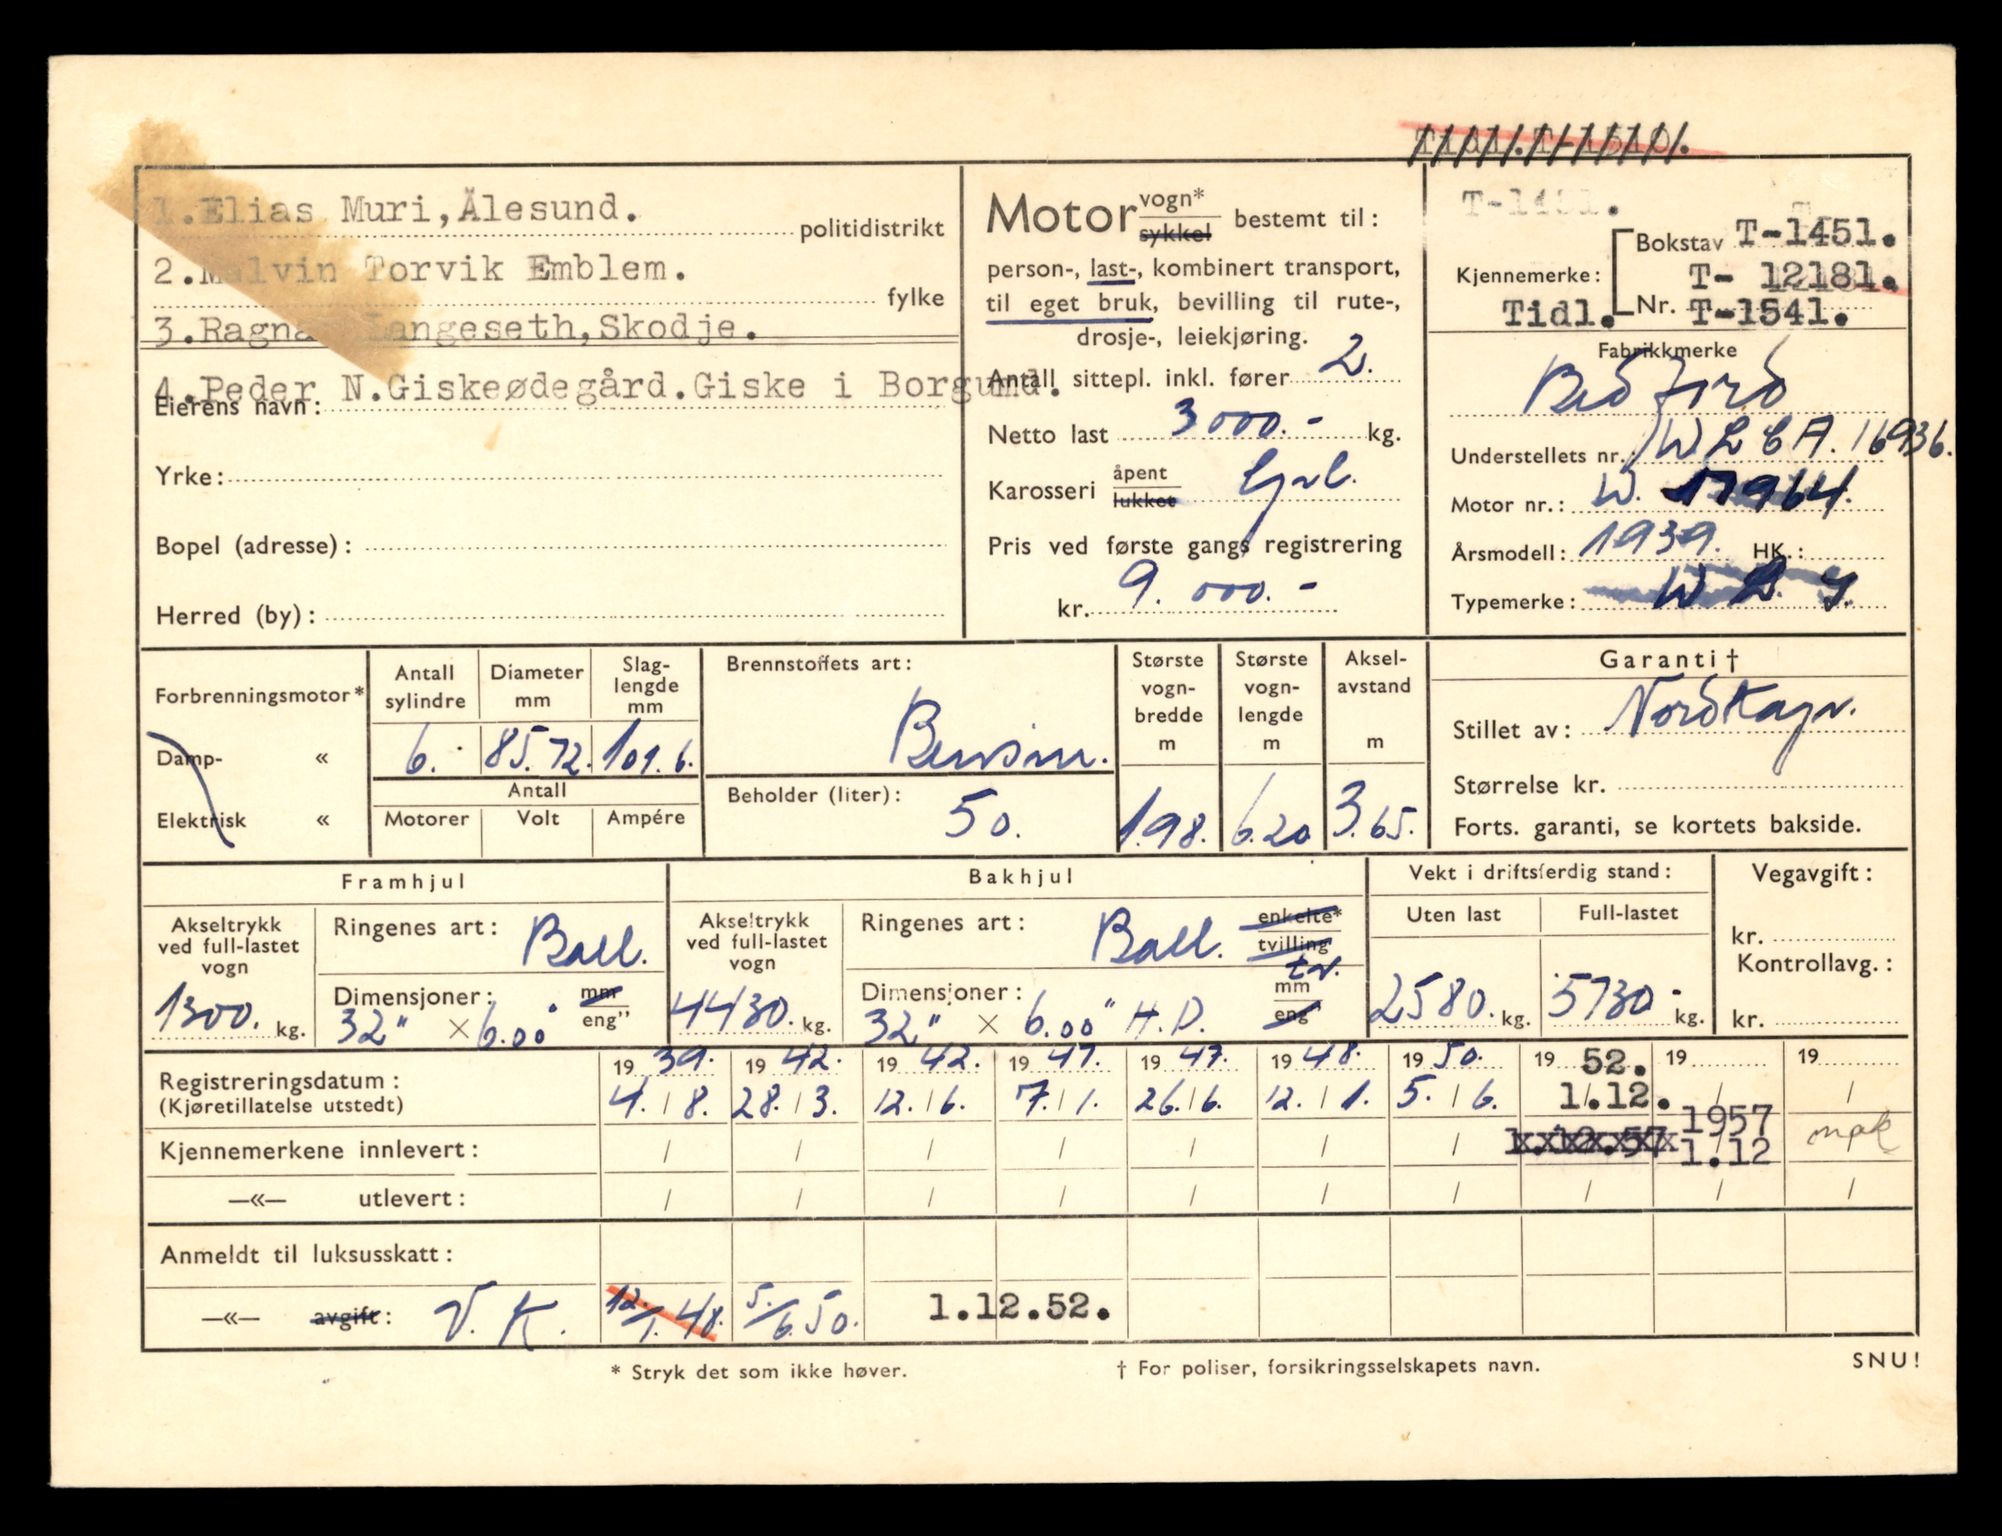 1.Elias Muri,Ålesund.
politidistrikt
2.Malvin Torvik Emblem.
fylke
3.Ragnar Langeseth,Skodje.
4.Peder N.Giskeødegård.Giske i Borgund.
Eierens navn:
Yrke:
Bopel (adresse):
Herred (by):
Motor vogn* sykkel bestemt til:
person-, last-, kombinert transport,
til eget bruk, bevilling til rute-,
drosje-, leiekjøring.
Antall sittepl. inkl. fører 2.
Netto last 3000.- kg.
Karosseri åpent lukket
Pris ved første gangs registrering
kr. 9.000.-
Bokstav T-1451.
Kjennemerke: T- 12181.
Tidl. Nr. T-1541.
Fabrikkmerke
Bedford
Understellets nr.: WLCA.16936.
Motor nr.: W. 17964.
Årsmodell: 1939. HK.:
Typemerke:
Forbrenningsmotor*
Damp- «
Elektrisk «
Antall sylindre
6.
Diameter mm
85.72.
Slag-lengde mm
101.6.
Antall
Motorer Volt Ampére
Brennstoffets art:
Bensin.
Beholder (liter):
50.
Største vogn-bredde m
1.98.
Største vogn-lengde m
6.20
Aksel-avstand m
3.65.
Garanti †
Stillet av:
Størrelse kr.
Forts. garanti, se kortets bakside.
Framhjul
Akseltrykk ved full-lastet vogn
1300. kg.
Ringenes art: Ball.
Dimensjoner: mm eng"
32" × 6.00"
Bakhjul
Akseltrykk ved full-lastet vogn
4430. kg.
Ringenes art: Ball. enkelte* tvilling
tv.
Dimensjoner: mm eng"
32" × 6.00" H.D.
Vekt i driftsferdig stand:
Uten last Full-lastet
2580. kg. 5730- kg.
Vegavgift:
kr.
Kontrollavg.:
kr.
Registreringsdatum: 1939. 1942. 1942. 1947. 1947. 1948. 1950. 19 52. 19 19
(Kjøretillatelse utstedt) 4./8. 28./3. 12./6. 7./1. 26./6. 12./1. 5./6. 1.12. / /
Kjennemerkene innlevert: / / / / / / / 1957 1.12
—«— utlevert: / / / / / / / / / /
Anmeldt til luksusskatt:
—«— avgift: V.K. 12./1.48. 5./6.50. 1.12.52.
* Stryk det som ikke høver.
† For poliser, forsikringsselskapets navn.
SNU!